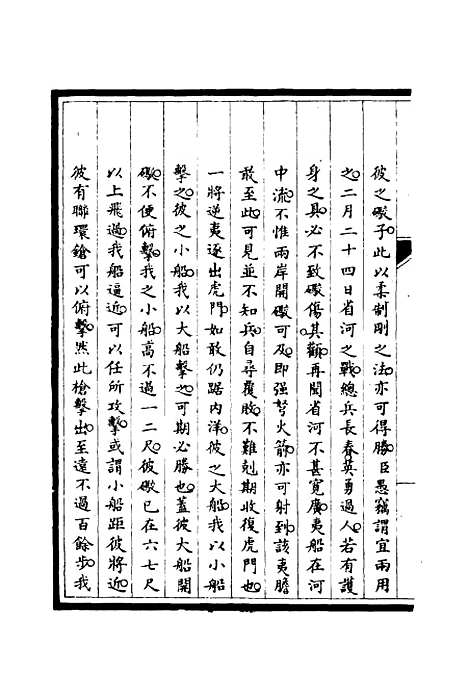 彼之礮子此以柔制剛之法亦可得勝臣愚竊謂宜兩用
之二月二十四日省河之戰總兵長春英勇過人若有護
身之具必不致礮傷其顴再聞省河不甚寬廣夷船在河
中流不惟兩岸開礮可及即强弩火箭亦可射到該夷膽
敢至此可見並不知兵自尋覆敗不難剋期收復虎門也
一將逆夷逐出虎門如敢仍踞内洋彼之大船我以小船
擊之彼之小船我以大船擊之可期必勝也蓋彼大船開
礮不便俯擊我之小船高不過一二尺彼礮已在六七尺
以上飛過我船逼近可以任所攻擊或謂小船距彼將近
彼有聯環鎗可以俯擊然此槍擊出至遠不過百餘步我